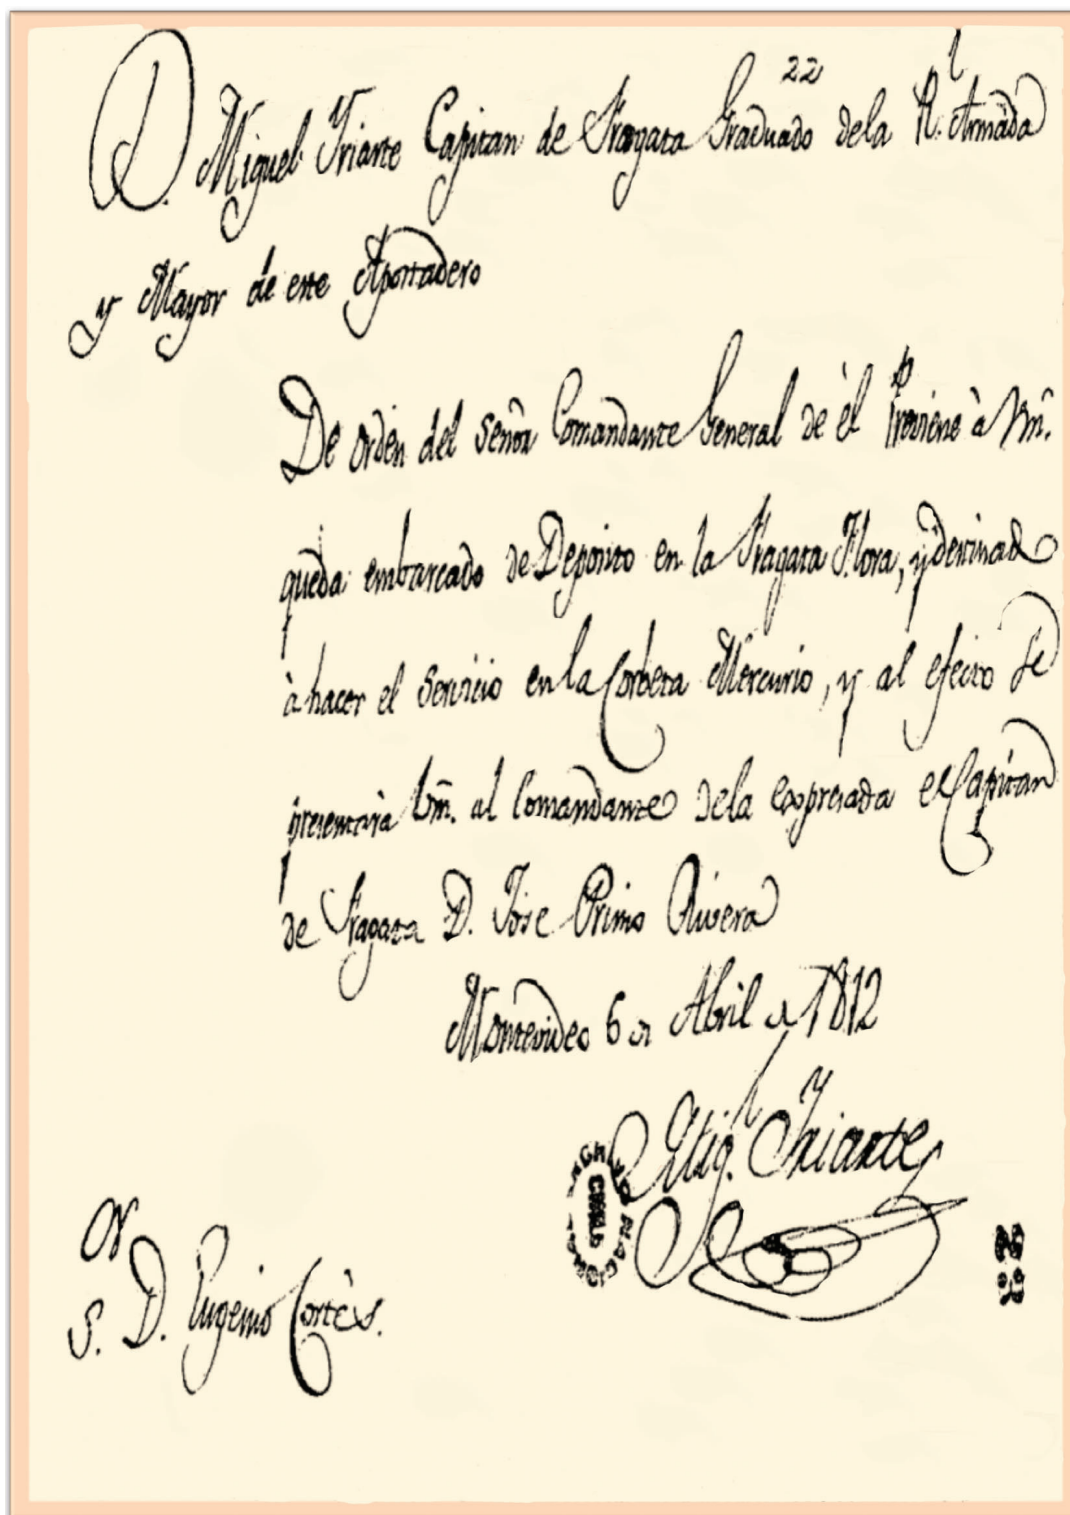 22
D. Miguel Yriarte Capitan de Fragata Graduado dela Rl. Armada
y Mayor de este Apostadero
De orden del señor Comandante General de èl Prevengo à Vm.
queda embarcado de Deposito en la Fragata Flora, y destinado
à hacer el servicio en la Corbeta Mercurio, y al efecto se
presentarà Vm. al Comandante dela expresada el Capitan
de Fragata D. Jose Primo Rivera
Montevideo 6 de Abril de 1812
Mig. Yriarte
ARCHIVO NACIONAL
CHILE
Sr. D. Eugenio Cortès.